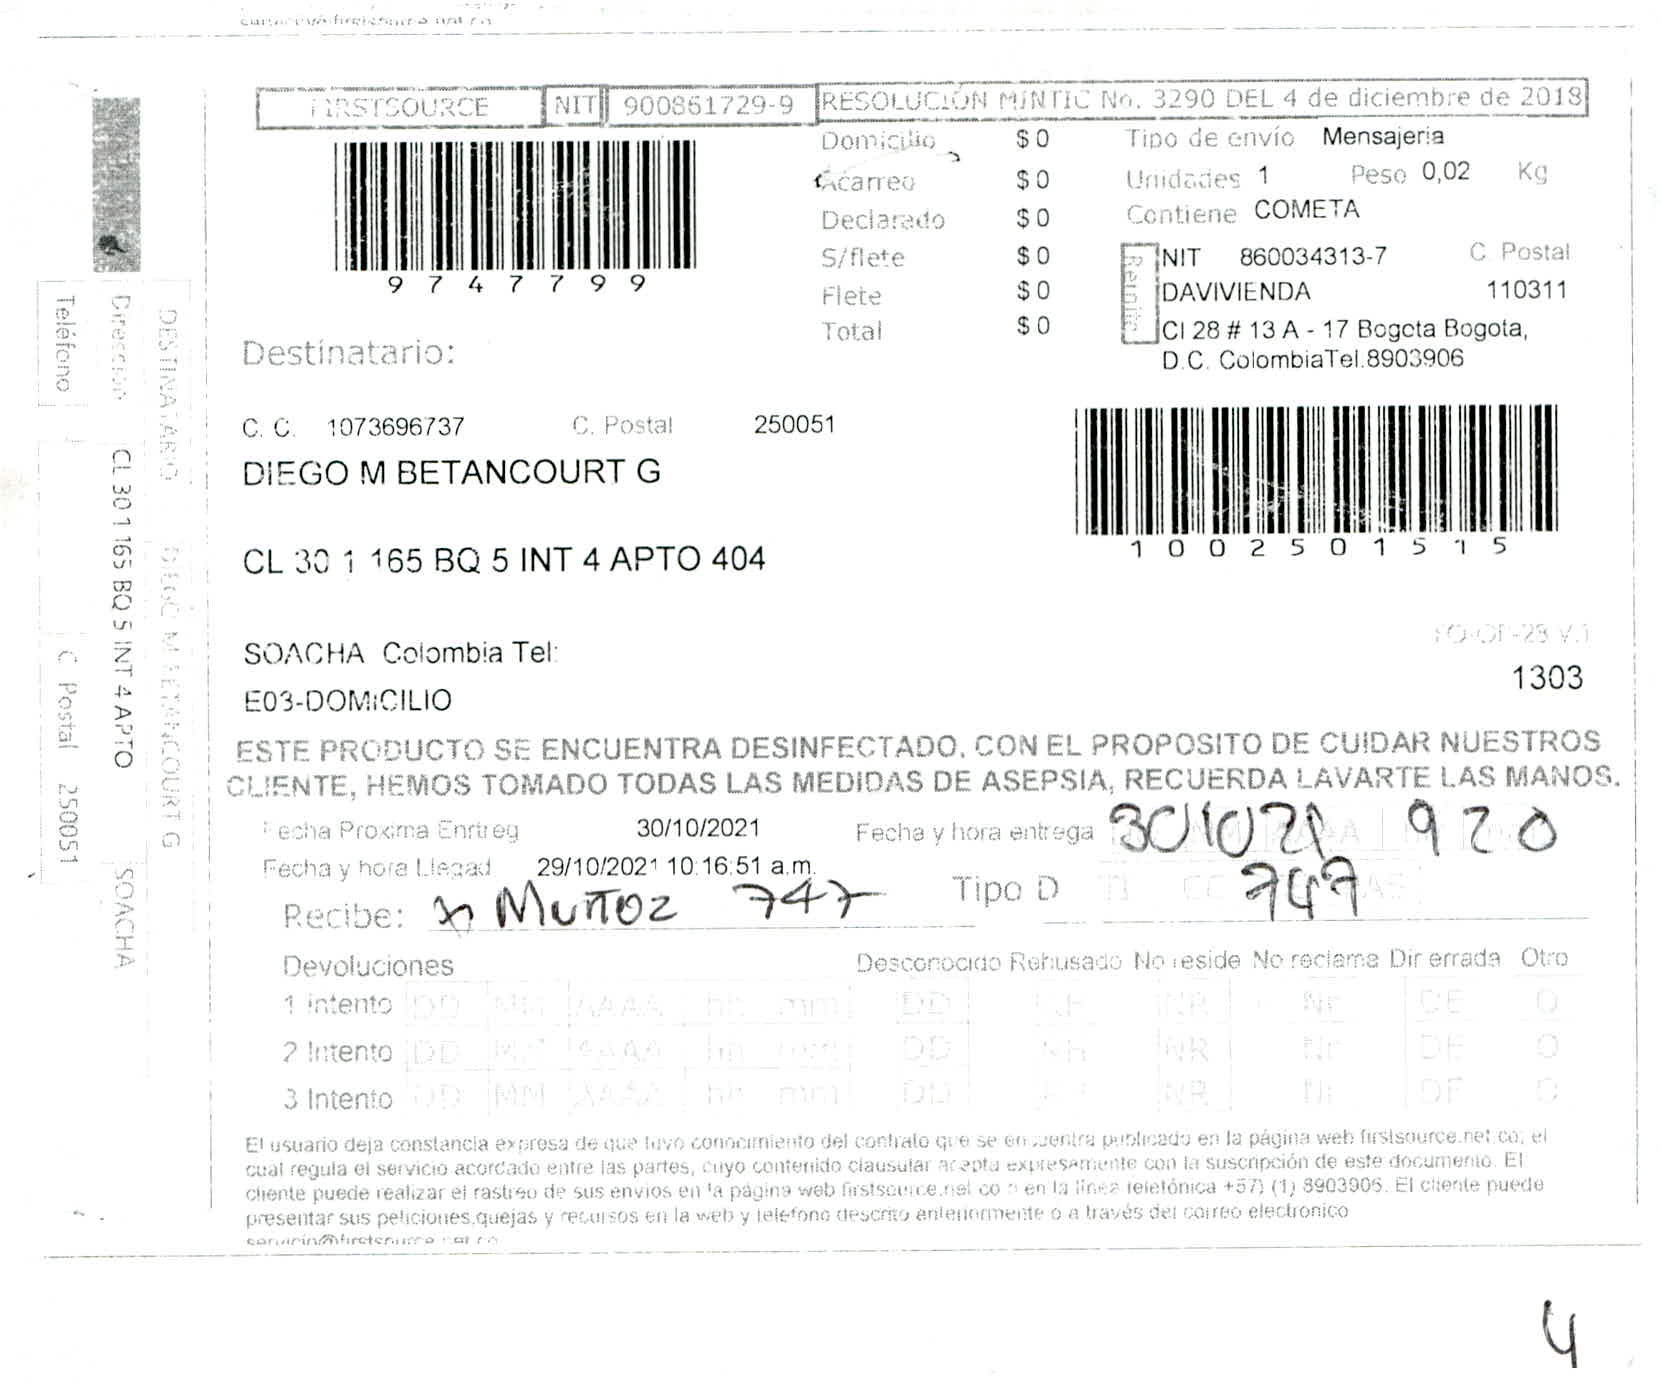 FIRSTSOURCE NIT 900861729-9 RESOLUCIÓN MINTIC No. 3290 DEL 4 de diciembre de 2018
9747799
Domicilio $ 0
Acarreo $ 0
Declarado $ 0
S/flete $ 0
Flete $ 0
Total $ 0
Tipo de envío Mensajeria
Unidades 1 Peso 0,02 Kg
Contiene COMETA
Remite
NIT 860034313-7 C. Postal
DAVIVIENDA 110311
Cl 28 # 13 A - 17 Bogota Bogota,
D.C. ColombiaTel.8903906
1002501515
Destinatario:
C. C. 1073696737 C. Postal 250051
DIEGO M BETANCOURT G
CL 30 1 165 BQ 5 INT 4 APTO 404
SOACHA Colombia Tel:
E03-DOMICILIO
1303
ESTE PRODUCTO SE ENCUENTRA DESINFECTADO, CON EL PROPOSITO DE CUIDAR NUESTROS
CLIENTE, HEMOS TOMADO TODAS LAS MEDIDAS DE ASEPSIA, RECUERDA LAVARTE LAS MANOS.
Fecha Proxima Enrtreg 30/10/2021 Fecha y hora entrega 301021 920
Fecha y hora Llegad 29/10/2021 10:16:51 a.m.
Recibe: Muñoz 747 Tipo D 747
Devoluciones Desconocido Rehusado No reside No reclama Dir errada Otro
1 Intento DD MM AAAA hh mm DD RH NR Nr DE O
2 Intento DD MM AAAA hh mm DD RH NR Nr DE O
3 Intento DD MM AAAA hh mm DD RH NR Nr DE O
El usuario deja constancia expresa de que tuvo conocimiento del contrato que se encuentra publicado en la página web firstsource.net.co; el
cual regula el servicio acordado entre las partes, cuyo contenido clausular acepta expresamente con la suscripción de este documento. El
cliente puede realizar el rastreo de sus envios en la página web firstsource.net.co o en la línea telefónica +57) (1) 8903906. El cliente puede
presentar sus peticiones,quejas y recursos en la web y telefono descrito anteriormente o a través del correo electronico
servicio@firstsource.net.co
DESTINATARIO DIEGO M BETANCOURT G
Dirección CL 30 1 165 BQ 5 INT 4 APTO SOACHA
Teléfono C Postal 250051
4